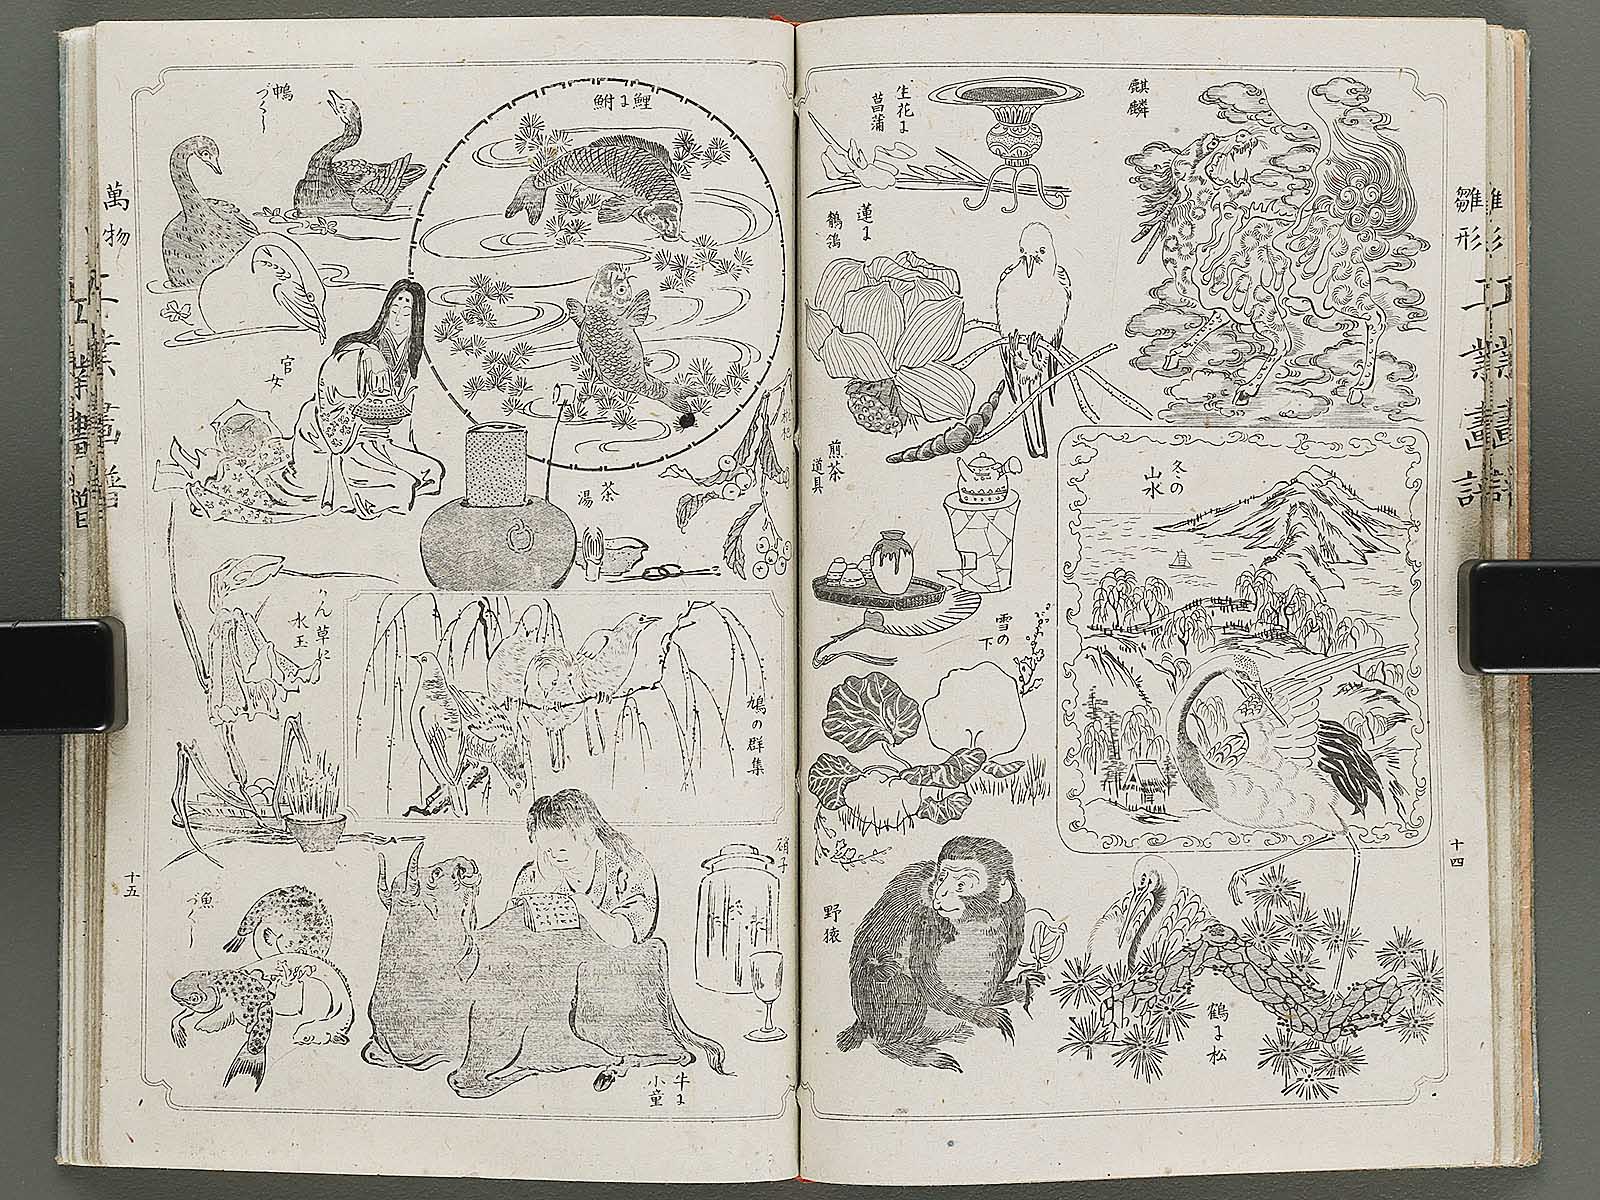 雛形
工業畫譜
十四
麒麟
生花に
菖蒲
蓮に
鶺鴒
冬の
山水
煎茶
道具
雪の
下
野猿
鶴に松
鯉に鮒
鴨
づくし
官女
茶
湯
枇杷
らん草に
水玉
鳩の群集
硝子
魚
づくし
牛に
小童
萬物
工業畫譜
十五